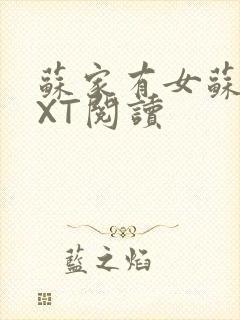 蘇家有女蘇
XT閱讀
藍之焰